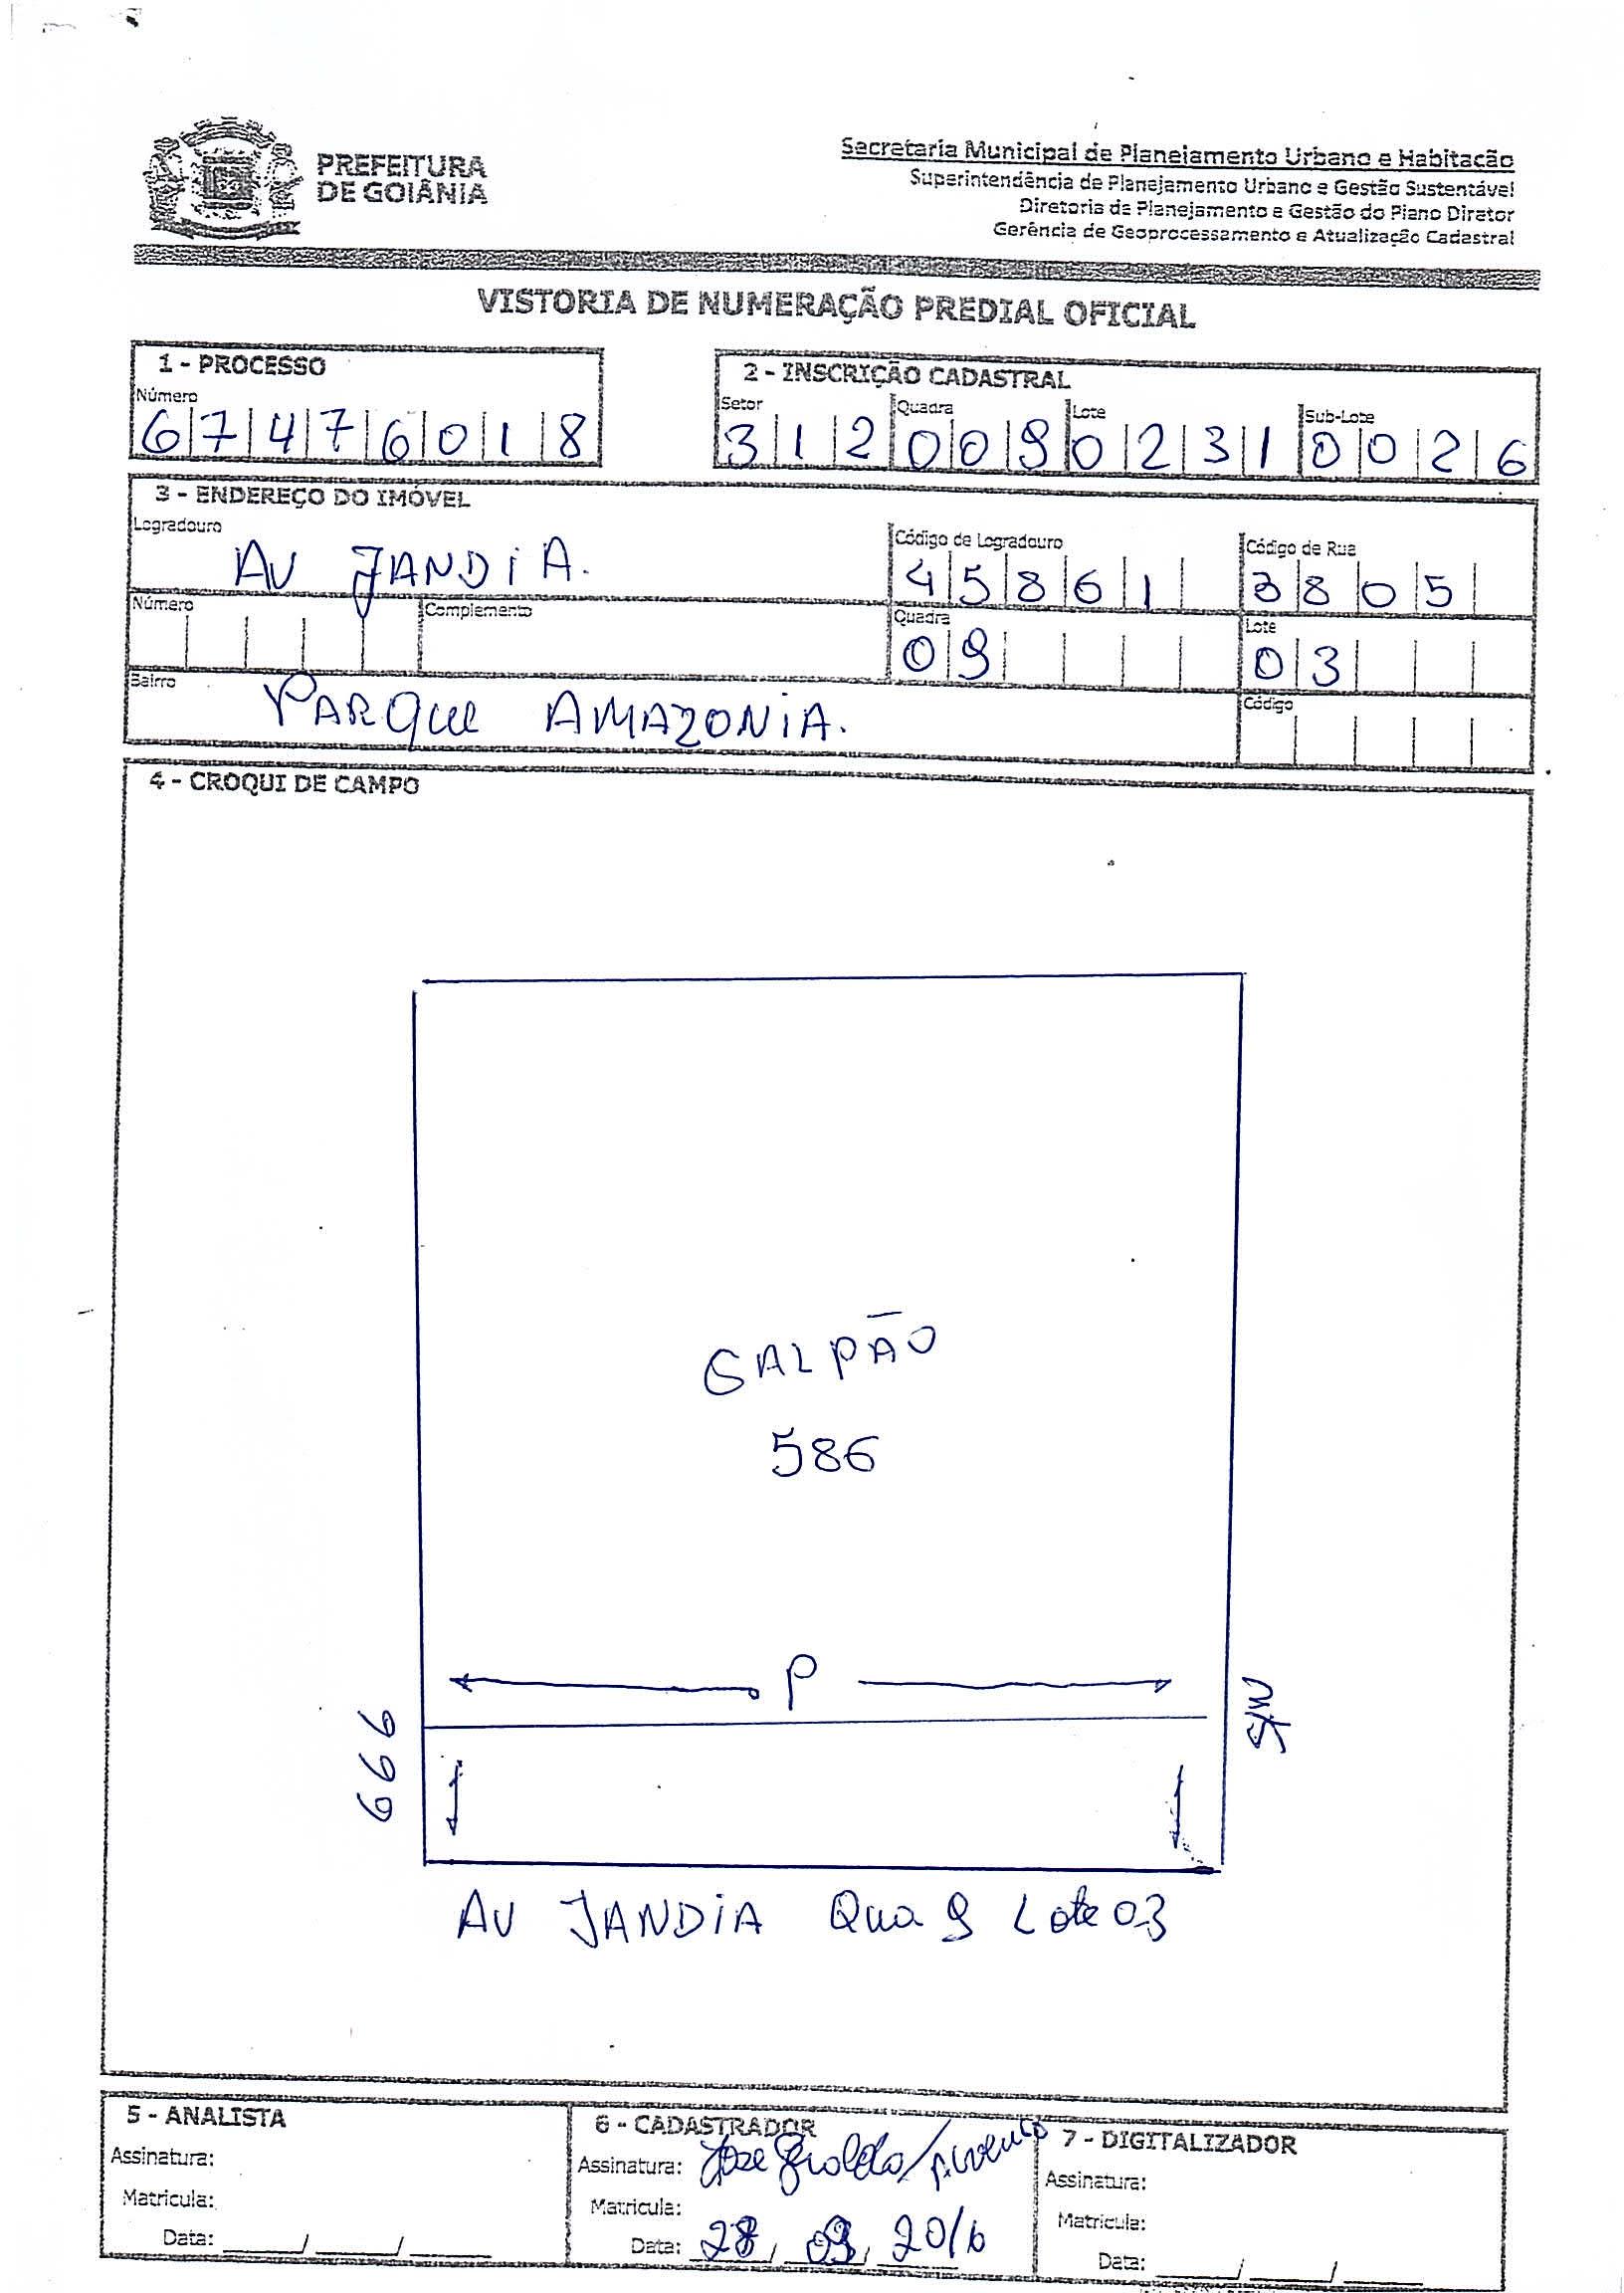 PREFEITURA
DE GOIÂNIA
Secretaria Municipal de Planejamento Urbano e Habitação
Superintendência de Planejamento Urbano e Gestão Sustentável
Diretoria de Planejamento e Gestão do Plano Diretor
Gerência de Geoprocessamento e Atualização Cadastral
VISTORIA DE NUMERAÇÃO PREDIAL OFICIAL
1 - PROCESSO
Número
67476018
2 - INSCRIÇÃO CADASTRAL
Setor Quadra Lote Sub-Lote
312 009 0231 0026
3 - ENDEREÇO DO IMÓVEL
Logradouro Código de Logradouro Código de Rua
AV JANDiA. 45861 3805
Número Complemento Quadra Lote
09 03
Bairro Código
PARQue AMAZONiA.
4 - CROQUI DE CAMPO
GALPÃO
586
P
666
S/N
AV JANDiA Qua 9 Lote 03
5 - ANALISTA
Assinatura:
Matricula:
Data: ____/____/____
6 - CADASTRADOR
Assinatura: Jose Geraldo
Matricula:
Data: 28, 09, 2016
7 - DIGITALIZADOR
Assinatura:
Matricula:
Data: ____/____/____